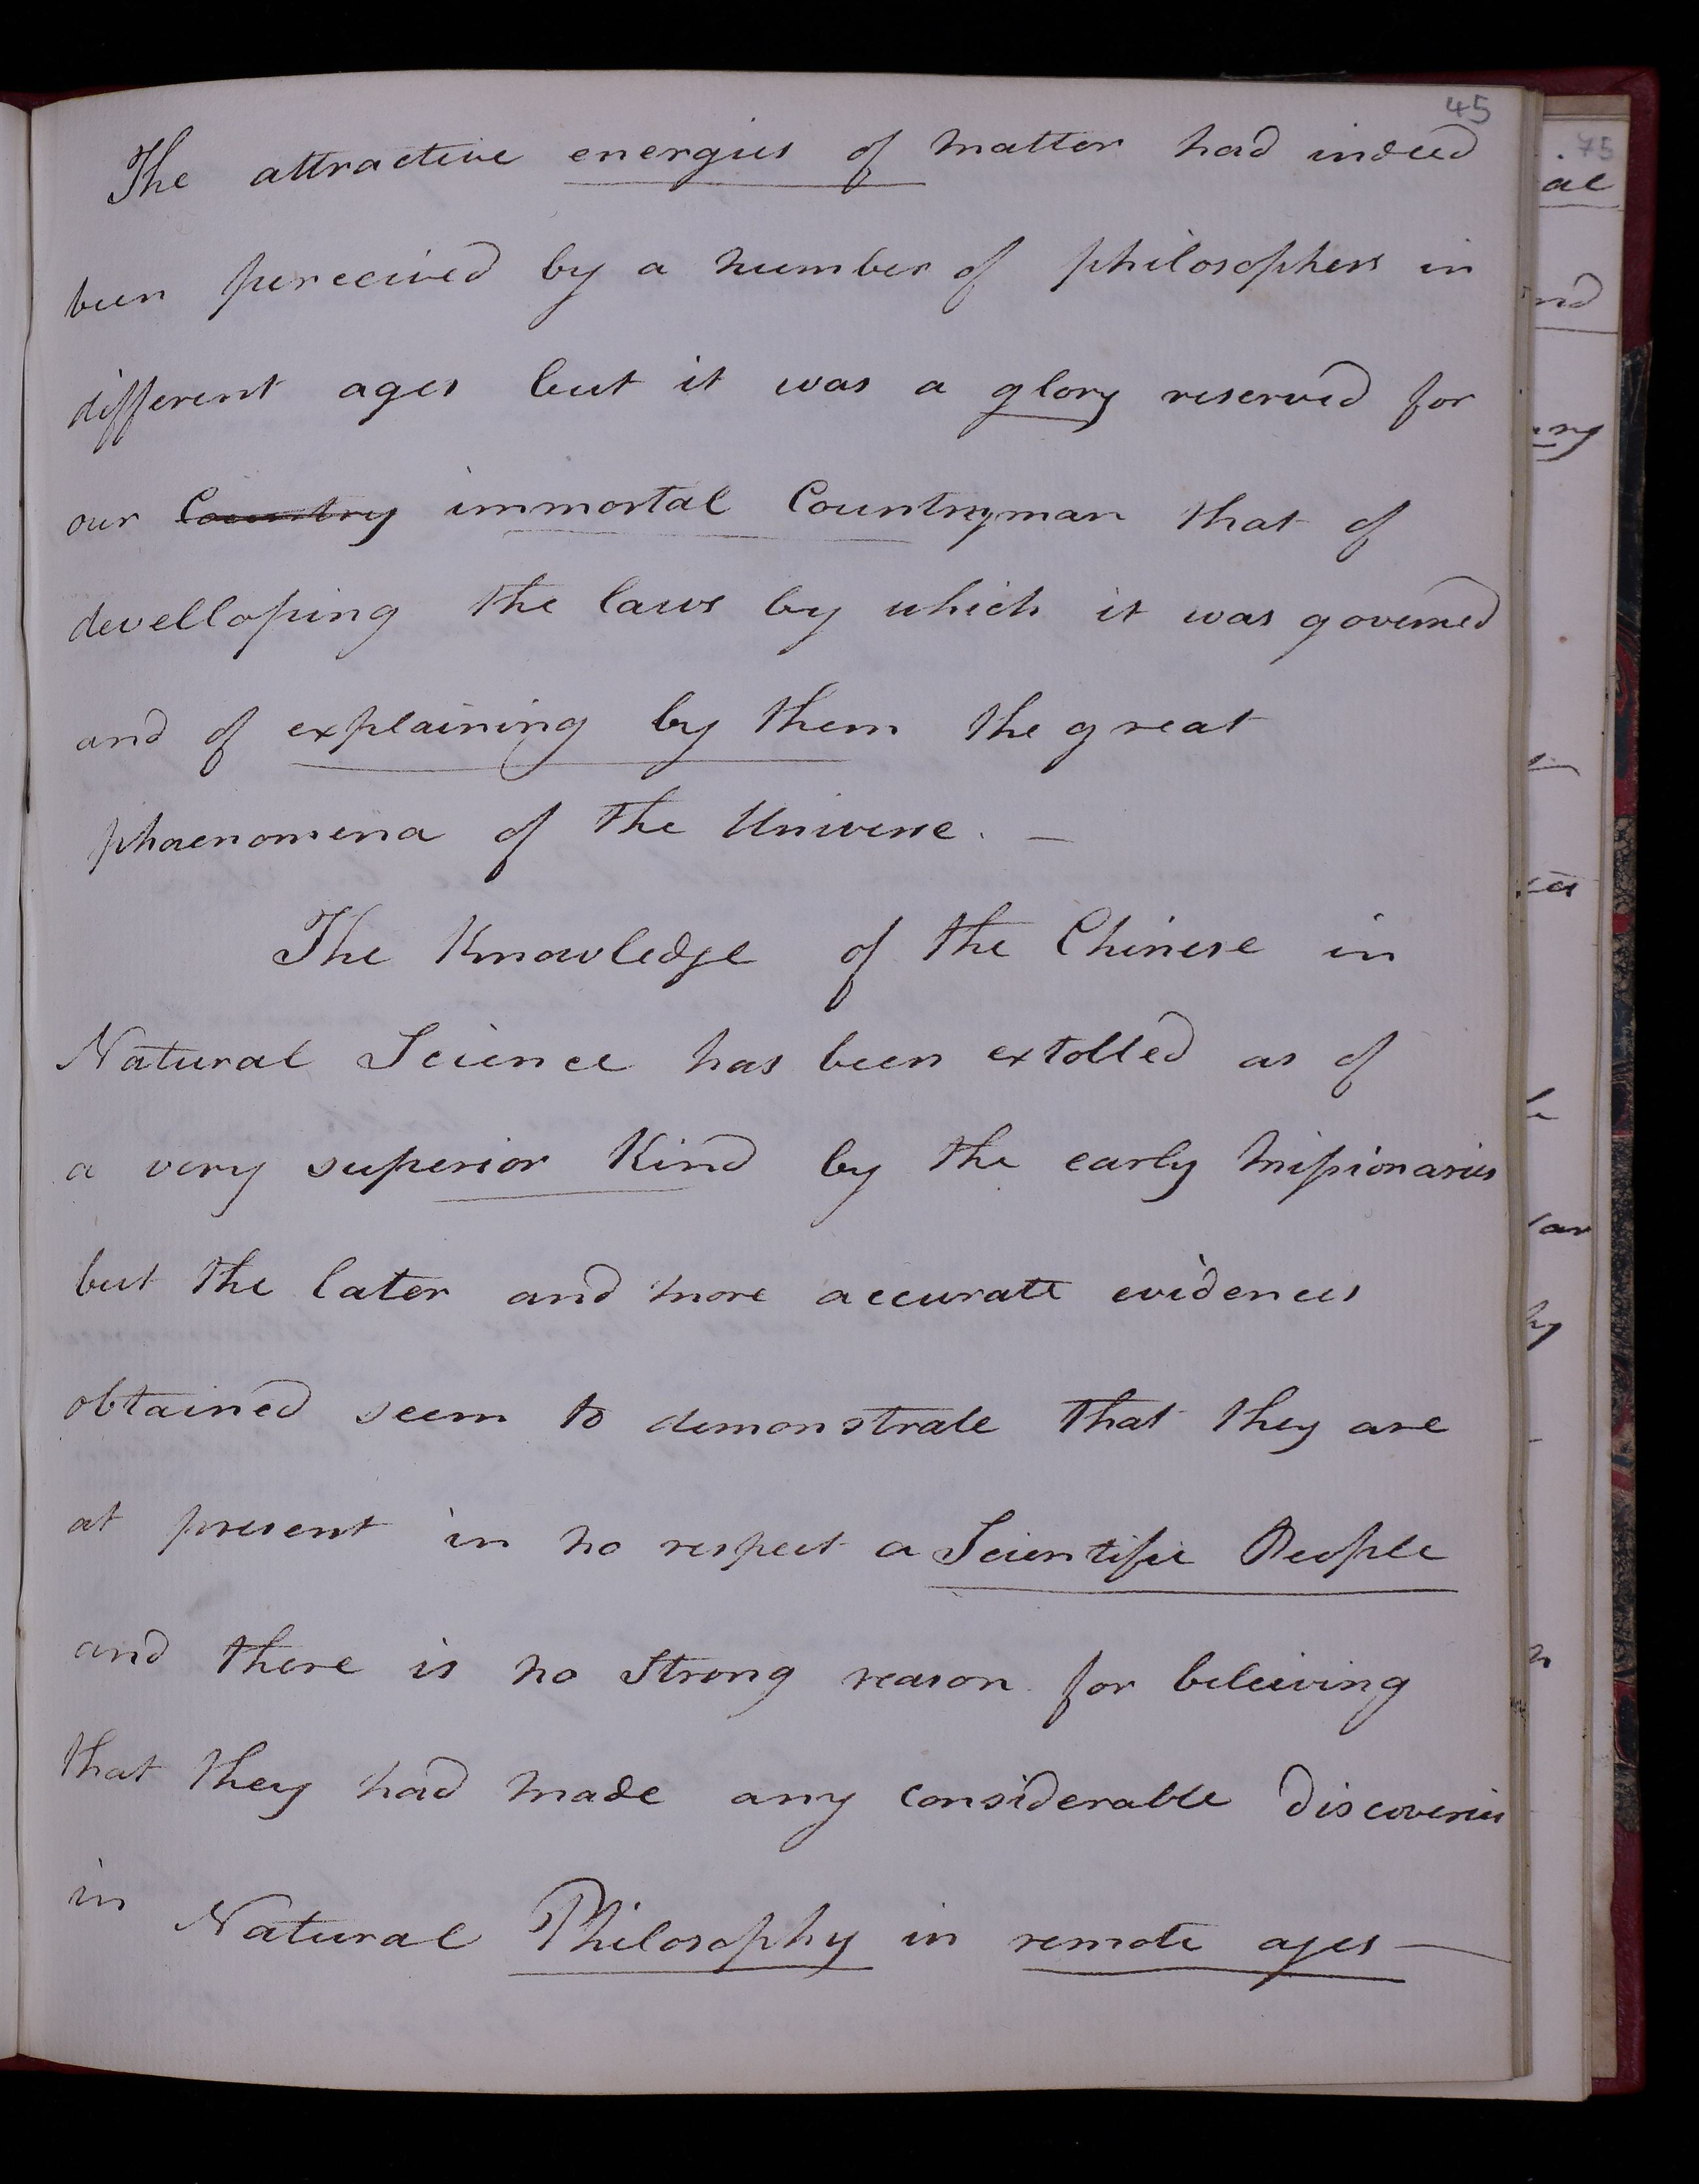 45
The attractive energies of matter had indeed
been perceived by a number of philosophers in
different ages but it was a glory reserved for
our Country immortal Countryman that of
develloping the laws by which it was governed
and of explaining by them the great
phaenomena of the Universe. —
The Knowledge of the Chinese in
Natural Science has been extolled as of
a very superior Kind by the early missionaries
but the later and more accurate evidences
obtained seem to demonstrate that they are
at present in no respect a Scientific People
and there is no strong reason for beleiving
that they had made any considerable discoveries
in Natural Philosophy in remote ages —
75